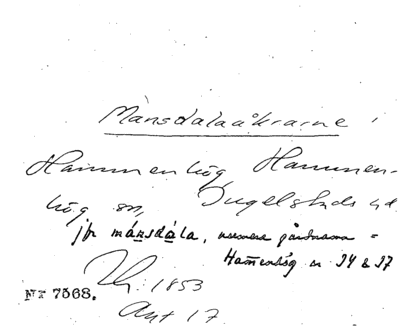 Månsdalaåkrarne
Hammenhög Hammen-
hög sn, Ingelstads hd.
jfr månsdåla, numera gårdnamn =
Hammenhög nr 34 & 37
1853
Nr 7568.
Akt 17